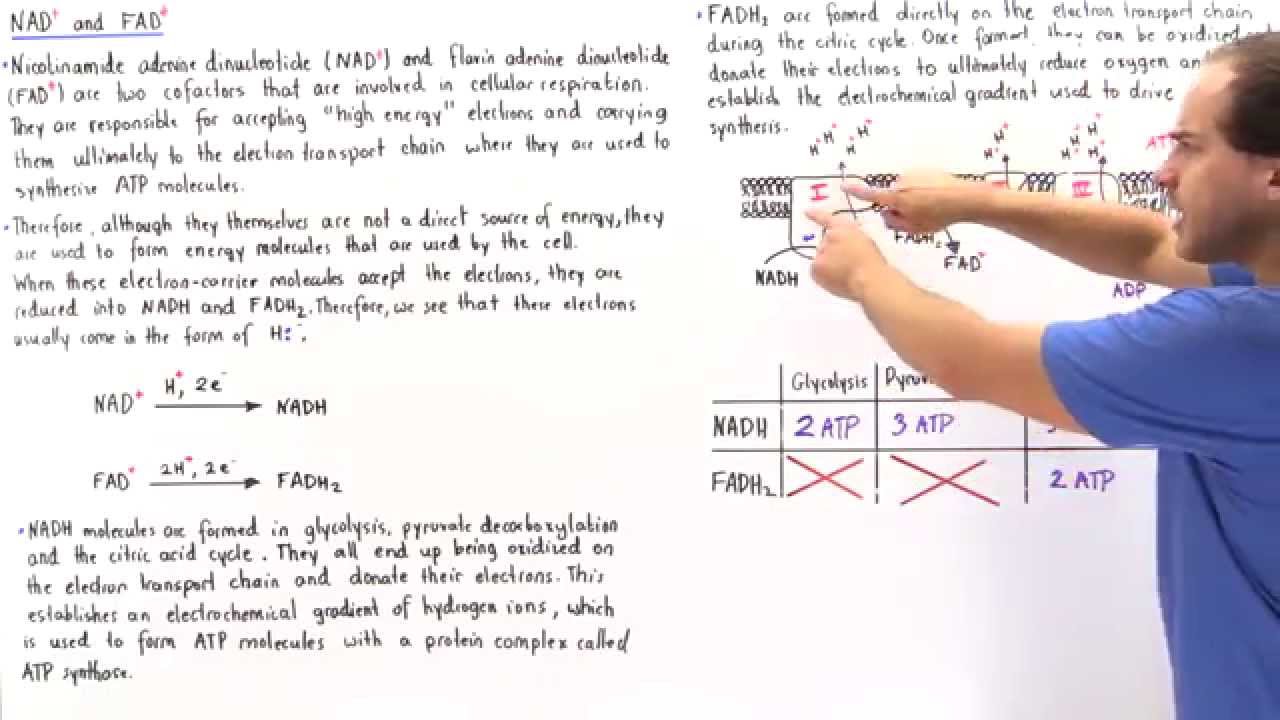 NAD⁺ and FAD⁺
•Nicotinamide adenine dinucleotide (NAD⁺) and flavin adenine dinucleotide
(FAD⁺) are two cofactors that are involved in cellular respiration.
They are responsible for accepting "high energy" electrons and carrying
them ultimately to the electron transport chain where they are used to
synthesize ATP molecules.
•Therefore, although they themselves are not a direct source of energy, they
are used to form energy molecules that are used by the cell.
When these electron-carrier molecules accept the electrons, they are
reduced into NADH and FADH₂. Therefore, we see that these electrons
usually come in the form of H:⁻.
H⁺, 2e⁻
NAD⁺ → NADH
2H⁺, 2e⁻
FAD⁺ → FADH₂
•NADH molecules are formed in glycolysis, pyruvate decarboxylation
and the citric acid cycle. They all end up being oxidized on
the electron transport chain and donate their electrons. This
establishes an electrochemical gradient of hydrogen ions, which
is used to form ATP molecules with a protein complex called
ATP synthase.
•FADH₂ are formed directly on the electron transport chain
during the citric cycle. Once formed, they can be oxidized
donate their electrons to ultimately reduce oxygen
establish the electrochemical gradient used to drive
synthesis.
H⁺ H⁺ H⁺ H⁺ H⁺ H⁺ H⁺ H⁺ H⁺ H⁺
I III
FADH₂
NADH FAD⁺
ADP
Glycolysis
NADH 2 ATP 3 ATP
FADH₂ 2 ATP